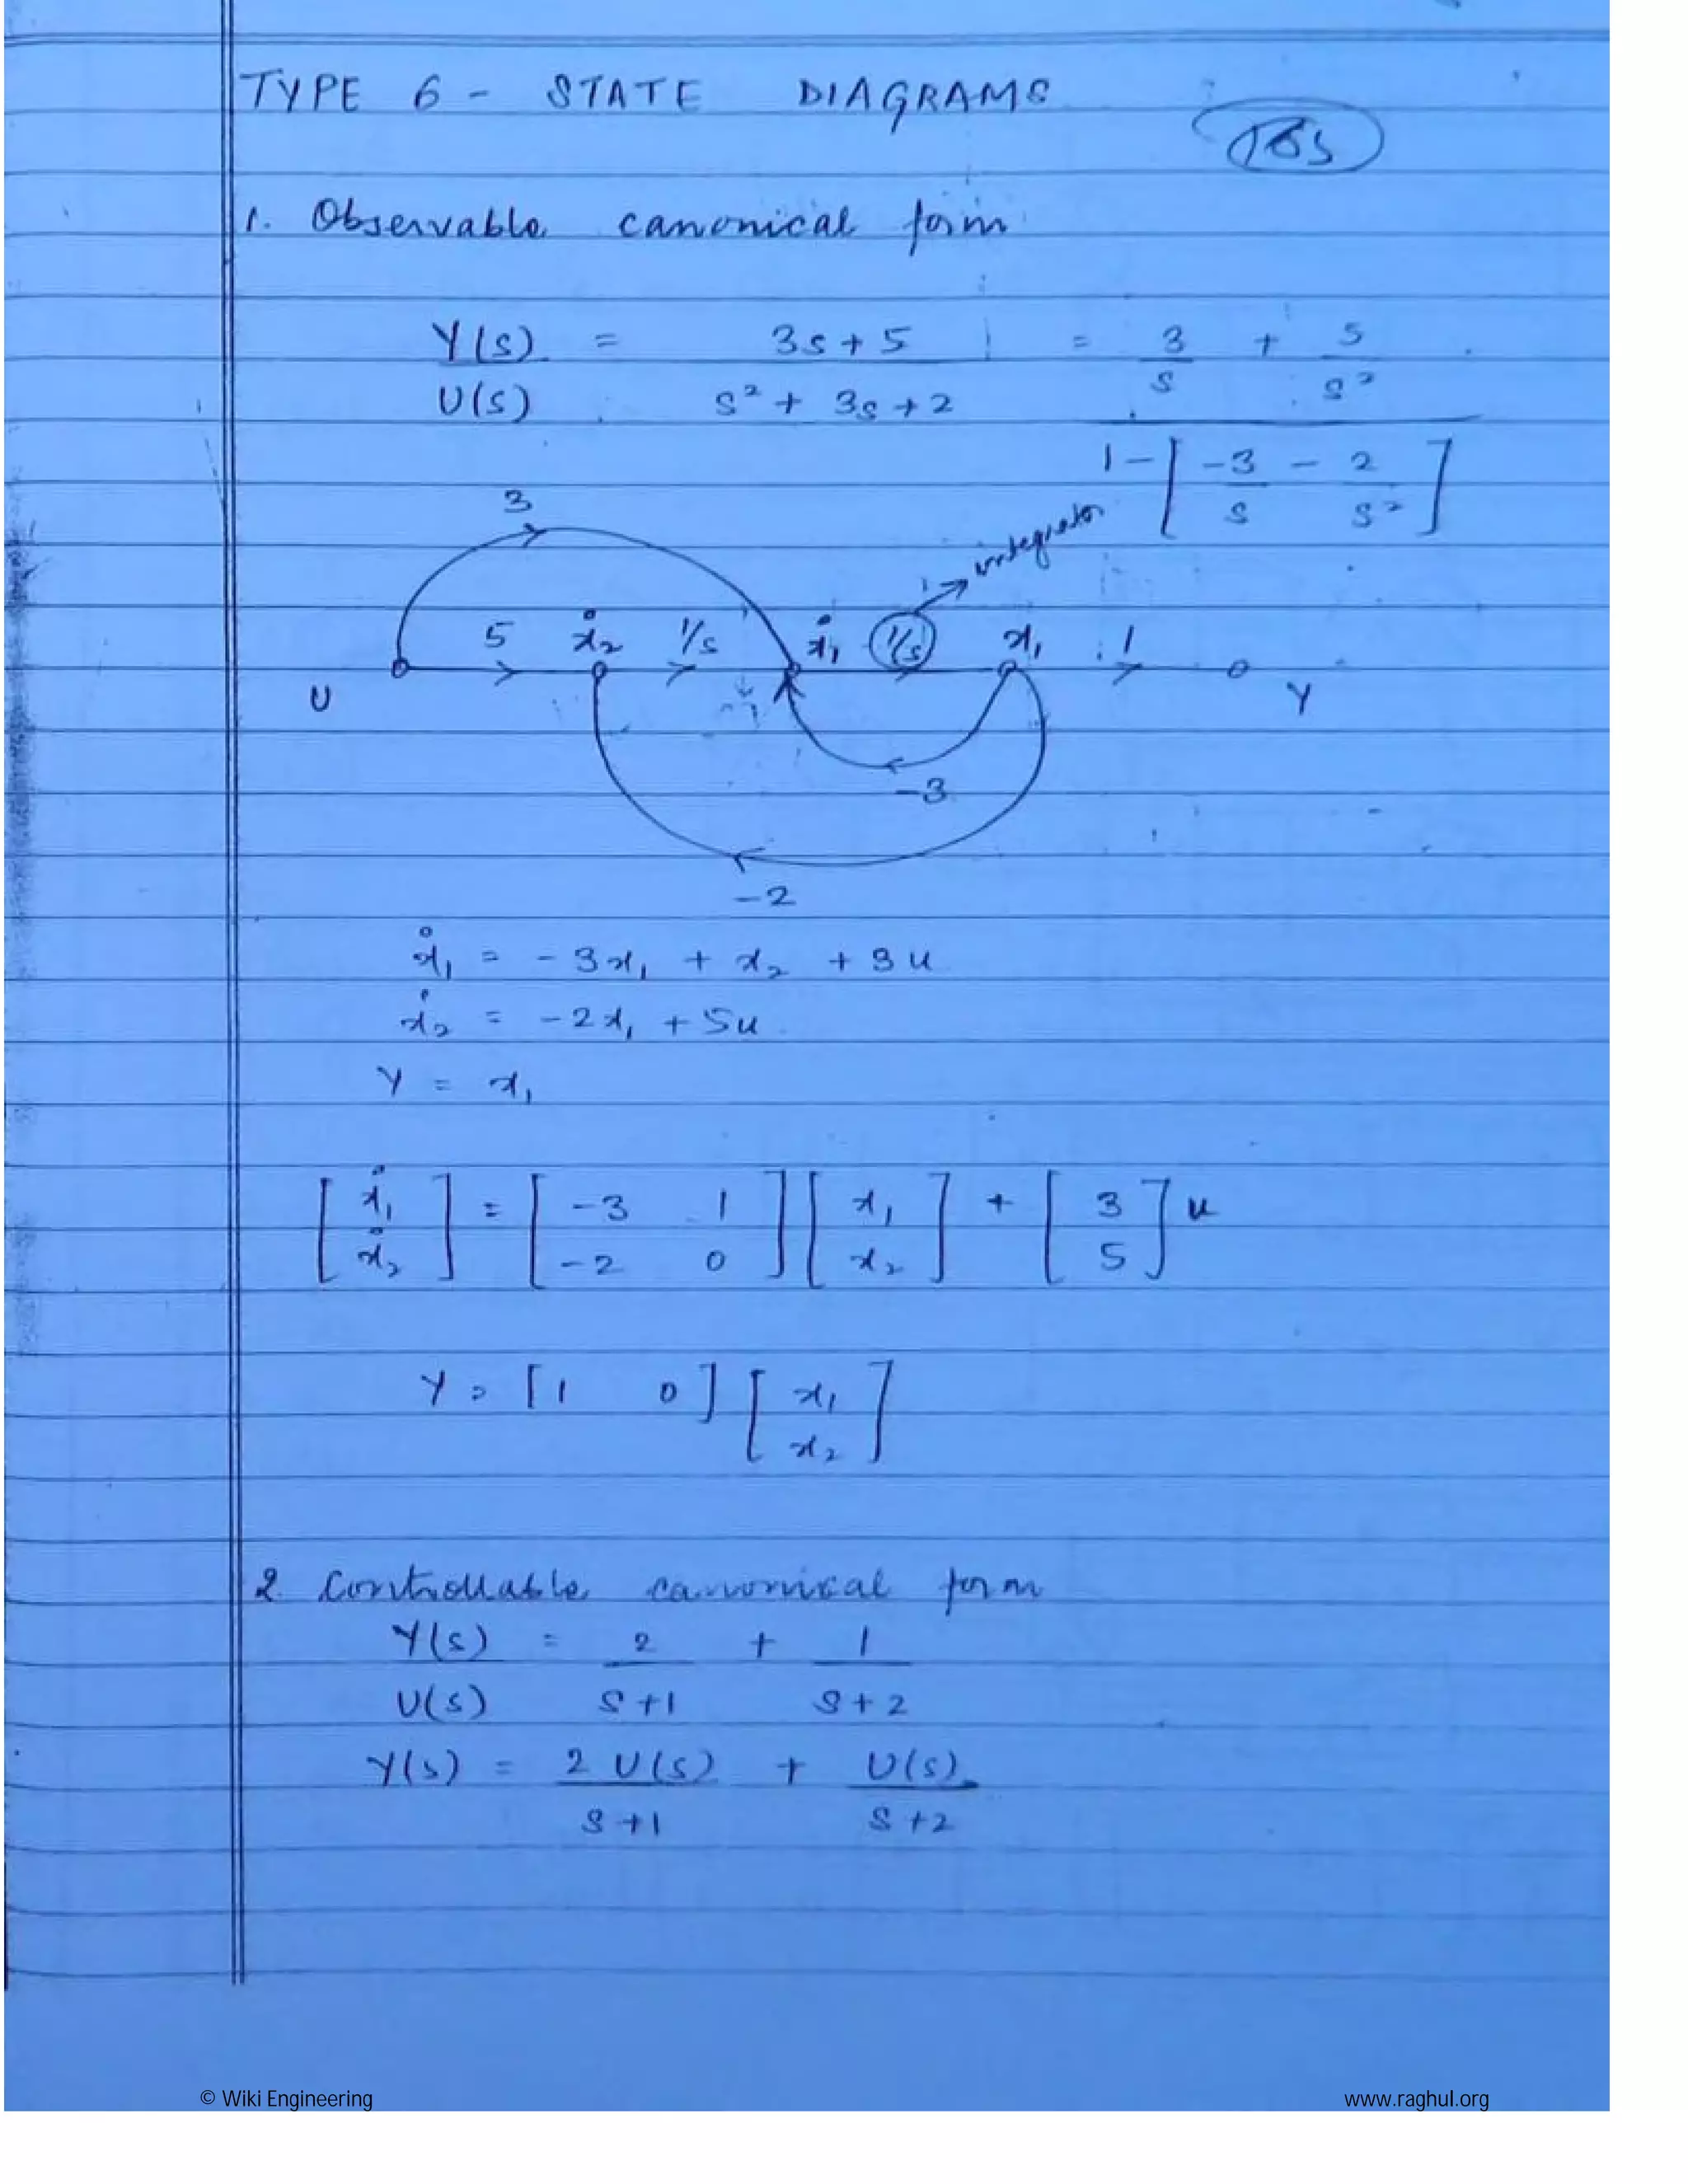 TYPE 6 - STATE DIAGRAMS
1. Observable canonical form
Y(s) = 3s + 5 = 3 + 5
U(s) s² + 3s + 2 s s²
1 - [ -3 - 2 ]
s s²
3
integrator
5 ẋ₂ 1/s ẋ₁ 1/s x₁ 1
U Y
-3
-2
ẋ₁ = - 3x₁ + x₂ + 3u
ẋ₂ = - 2x₁ + 5u
Y = x₁
[ ẋ₁ ] = [ -3 1 ] [ x₁ ] + [ 3 ] u
[ ẋ₂ ] [ -2 0 ] [ x₂ ] [ 5 ]
Y = [ 1 0 ] [ x₁ ]
[ x₂ ]
2. Controllable canonical form
Y(s) = 2 + 1
U(s) s+1 s+2
Y(s) = 2 U(s) + U(s)
s+1 s+2
© Wiki Engineering www.raghul.org